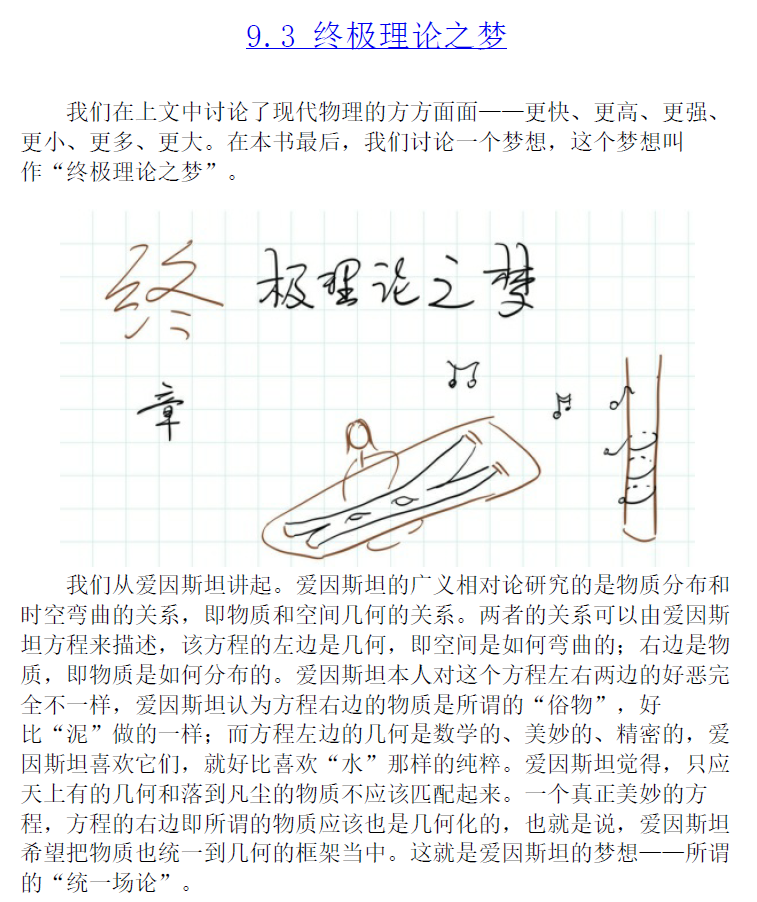 9.3 终极理论之梦
我们在上文中讨论了现代物理的方方面面——更快、更高、更强、
更小、更多、更大。在本书最后，我们讨论一个梦想，这个梦想叫
作“终极理论之梦”。
终极理论之梦
章
我们从爱因斯坦讲起。爱因斯坦的广义相对论研究的是物质分布和
时空弯曲的关系，即物质和空间几何的关系。两者的关系可以由爱因斯
坦方程来描述，该方程的左边是几何，即空间是如何弯曲的；右边是物
质，即物质是如何分布的。爱因斯坦本人对这个方程左右两边的好恶完
全不一样，爱因斯坦认为方程右边的物质是所谓的“俗物”，好
比“泥”做的一样；而方程左边的几何是数学的、美妙的、精密的，爱
因斯坦喜欢它们，就好比喜欢“水”那样的纯粹。爱因斯坦觉得，只应
天上有的几何和落到凡尘的物质不应该匹配起来。一个真正美妙的方
程，方程的右边即所谓的物质应该也是几何化的，也就是说，爱因斯坦
希望把物质也统一到几何的框架当中。这就是爱因斯坦的梦想——所谓
的“统一场论”。